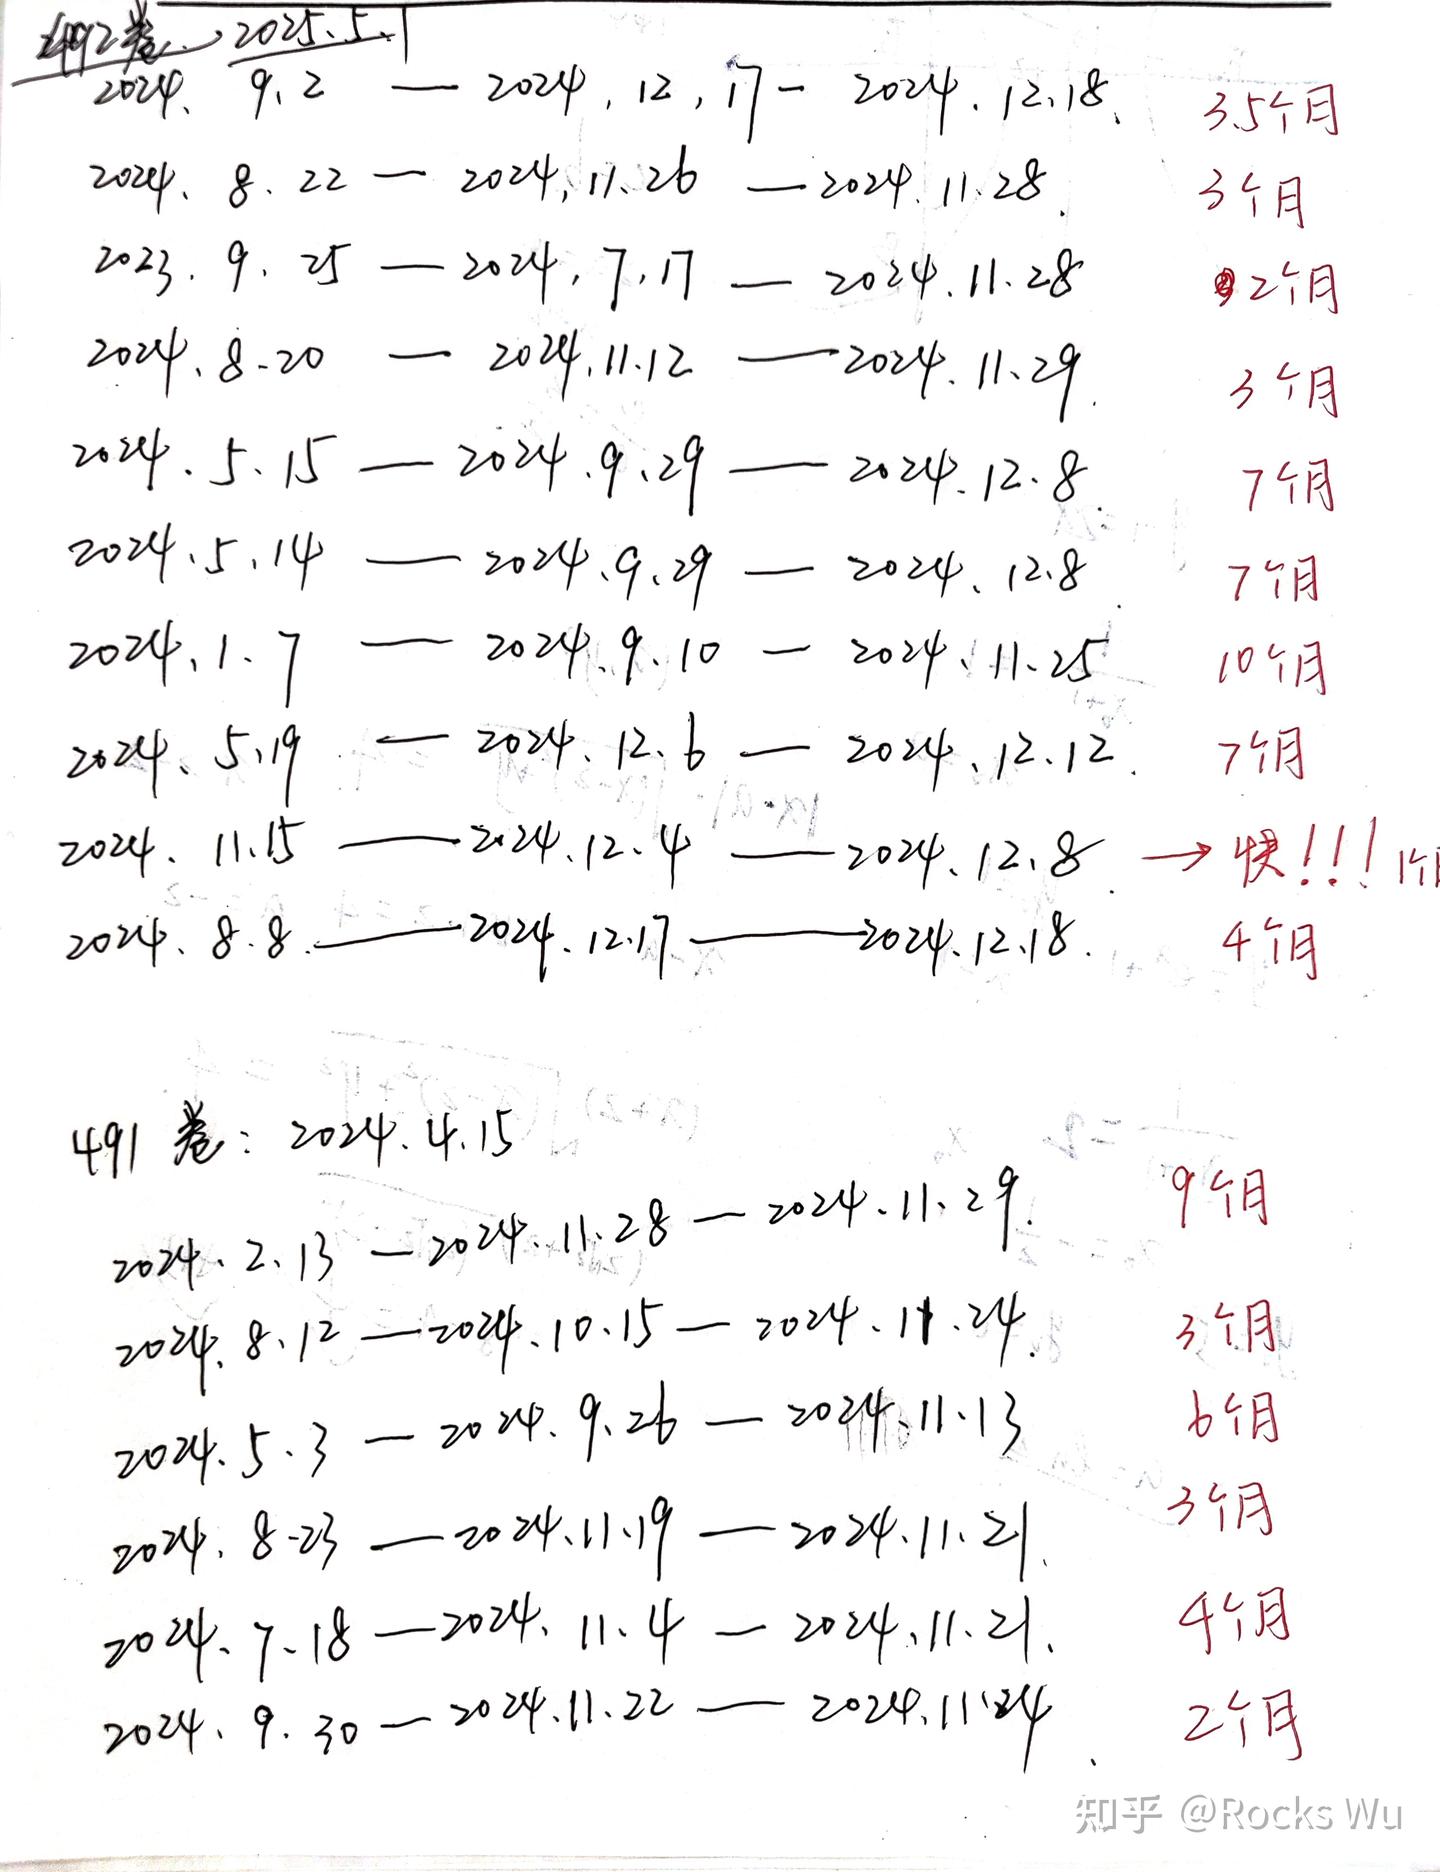 492卷. 2025.5.1
2024. 9.2 — 2024.12.17 - 2024.12.18. 3.5个月
2024. 8.22 — 2024.11.26 — 2024.11.28. 3个月
2023.9.25 — 2024.7.17 — 2024.11.28 2个月
2024.8.20 — 2024.11.12 — 2024.11.29. 3个月
2024.5.15 — 2024.9.29 — 2024.12.8 7个月
2024.5.14 — 2024.9.29 — 2024.12.8 7个月
2024.1.7 — 2024.9.10 — 2024.11.25 10个月
2024.5.19 — 2024.12.6 — 2024.12.12. 7个月
2024.11.15 — 2024.12.4 — 2024.12.8 → 快!!! 1个月
2024.8.8. — 2024.12.17 — 2024.12.18. 4个月
491卷: 2024.4.15
2024.2.13 — 2024.11.28 — 2024.11.29. 9个月
2024.8.12 — 2024.10.15 — 2024.11.24. 3个月
2024.5.3 — 2024.9.26 — 2024.11.13 6个月
2024.8.23 — 2024.11.19 — 2024.11.21. 3个月
2024.7.18 — 2024.11.4 — 2024.11.21. 4个月
2024.9.30 — 2024.11.22 — 2024.11.24. 2个月
知乎 @Rocks Wu